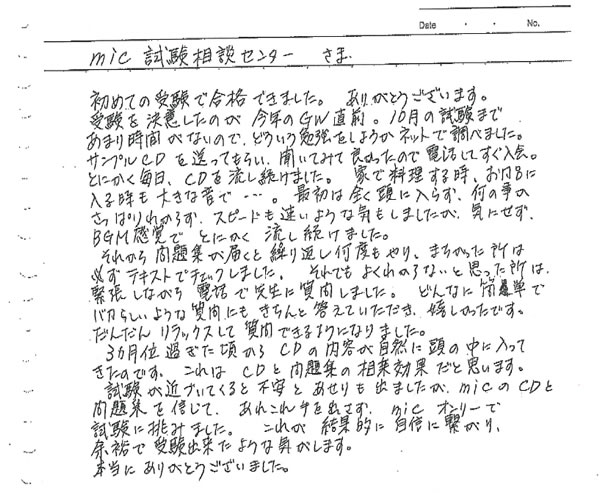 Date ・ ・ No.
mic 試験相談センター さま
初めての受験で合格できました。 ありがとうございます。
受験を決意したのが 今年のGW直前。10月の試験まで
あまり時間がないので、どういう勉強をしようかネットで調べました。
サンプルCDを送ってもらい、聞いてみて良かったので電話してすぐ入会。
とにかく毎日、CDを流し続けました。 家で料理する時、お風呂に
入る時も大きな音で…。最初は全く頭に入らず、何の事か
さっぱりわからず、スピードも速いような気もしましたが、気にせず、
BGM感覚で とにかく 流し続けました。
それから 問題集が届くと繰り返し何度もやり、まちがった所は
必ずテキストでチェックしました。 それでもよくわからないと思った所は、
緊張しながら 電話で先生に質問しました。 どんなに簡単で
バカらしいような質問にもきちんと答えていただき、嬉しかったです。
だんだん リラックスして質問できるようになりました。
3カ月位過ぎた頃から CDの内容が自然に頭の中に入って
きたのです。 これは CDと問題集の相乗効果だと思います。
試験が近づいてくると不安とあせりも出ましたが、micのCDと
問題集を信じて、あれこれ手を出さず、mic オンリーで
試験に挑みました。 これが 結果的に自信に繋がり、
余裕で受験出来たような気がします。
本当にありがとうございました。